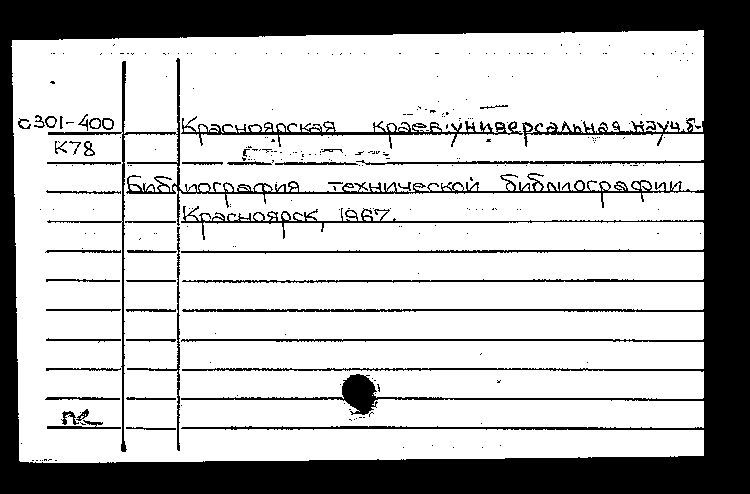 с301-400 Красноярская краев. универсальная науч. б-
К78
Библиография технической библиографии.
Красноярск, 1967.